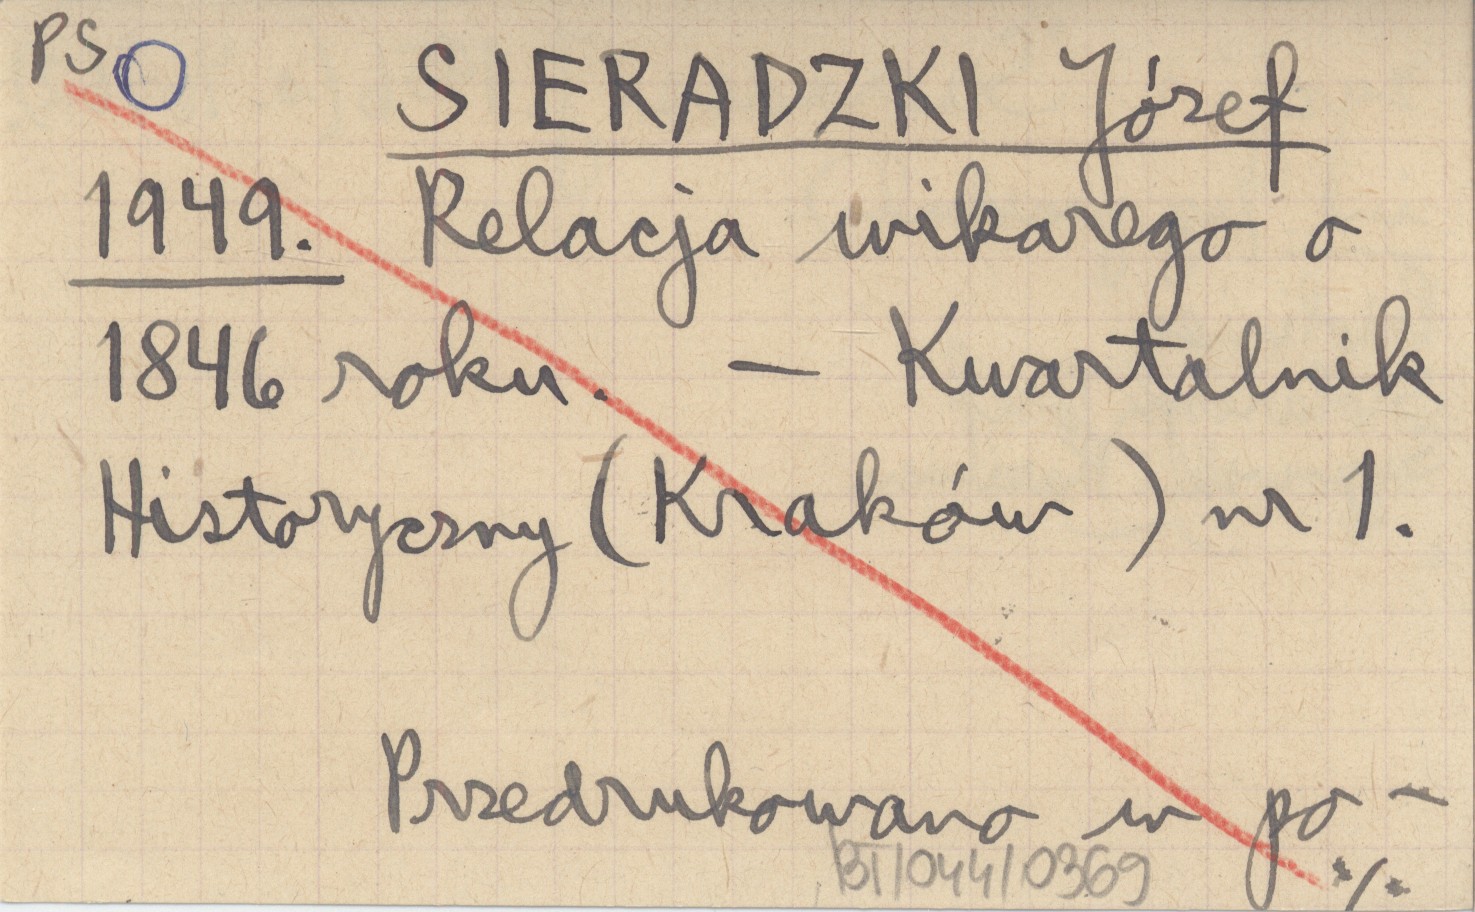 PS
SIERADZKI Józef
1949. Relacja wikarego o
1846 roku. — Kwartalnik
Historyczny (Kraków) nr 1.
Przedrukowano w po-
BT/044/0369
./.